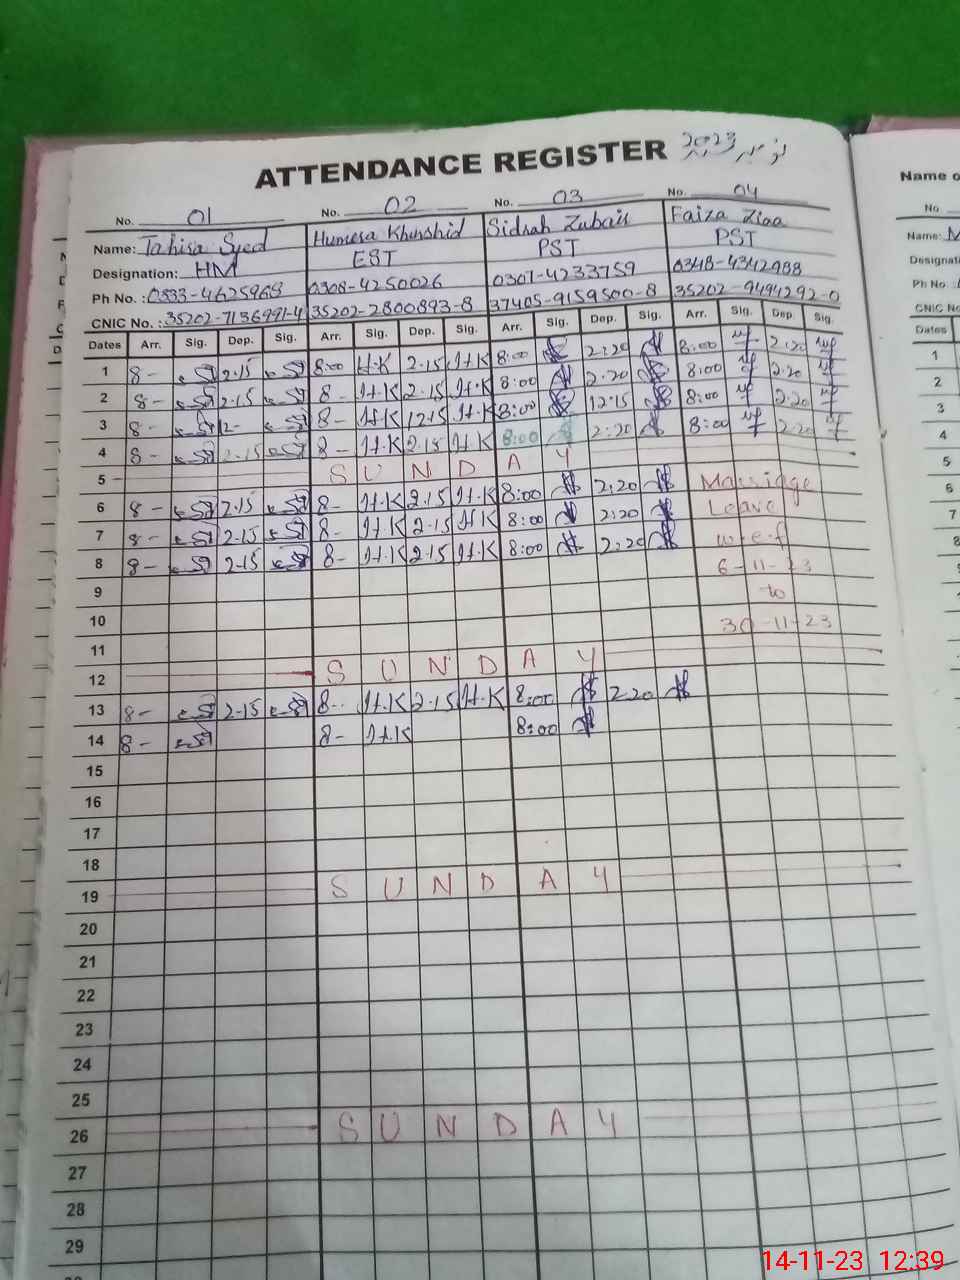 ATTENDANCE REGISTER نومبر 2023
No. 01 No. 02 No. 03 No. 04
Name: Tahira Syed Humera Khurshid Sidrah Zubair Faiza Ziaa
Designation: HM EST PST PST
Ph No.: 0333-4625969 0308-4250026 0307-4233759 0348-4342988
CNIC No.: 35202-7136991-4 35202-2800893-8 37405-9159500-8 35202-9494292-0
Dates Arr. Sig. Dep. Sig. Arr. Sig. Dep. Sig. Arr. Sig. Dep. Sig. Arr. Sig. Dep. Sig.
1 8- 2-15 8:00 H.K 2.15 H.K 8:00 2:20 8:00 2:20
2 8- 2-15 8- H.K 2-15 H.K 8:00 2:20 8:00 2.20
3 8- 12- 8- H.K 12-15 H.K 8:00 12:15 8:00 2.20
4 8- 2-15 8- H.K 2.15 H.K 8:00 2:20 8:00 2.20
5 SUNDAY
6 8- 2-15 8- H.K 2.15 H.K 8:00 2:20 Marriage
7 8- 2-15 8- H.K 2-15 H.K 8:00 2:20 Leave
8 8- 2-15 8- H.K 2.15 H.K 8:00 2:20 w.e.f
9 6-11-23
to
10 30-11-23
11
12 SUNDAY
13 8- 2-15 8- H.K 2.15 H.K 8:00 2.20
14 8- 8- H.K 8:00
15
16
17
18
19 SUNDAY
20
21
22
23
24
25
26 SUNDAY
27
28
29
Name o
No
Name: M
Designati
Ph No.:
CNIC No
Dates
1
2
3
4
5
6
7
8
14-11-23 12:39